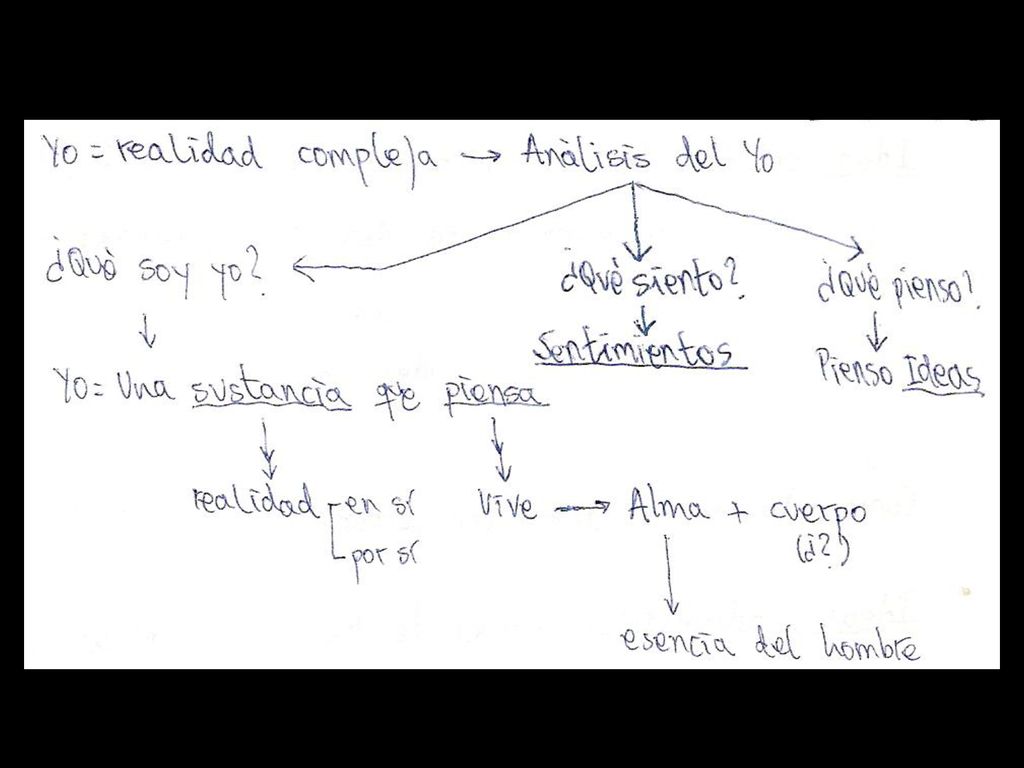 Yo = realidad compleja → Anàlisis del Yo
¿Què soy yo? ¿Què siento? ¿Què pienso?
Sentimientos Pienso Ideas
Yo = Una sustancia que piensa
realidad en sí vive → Alma + cuerpo
por sí (¿?)
esencia del hombre